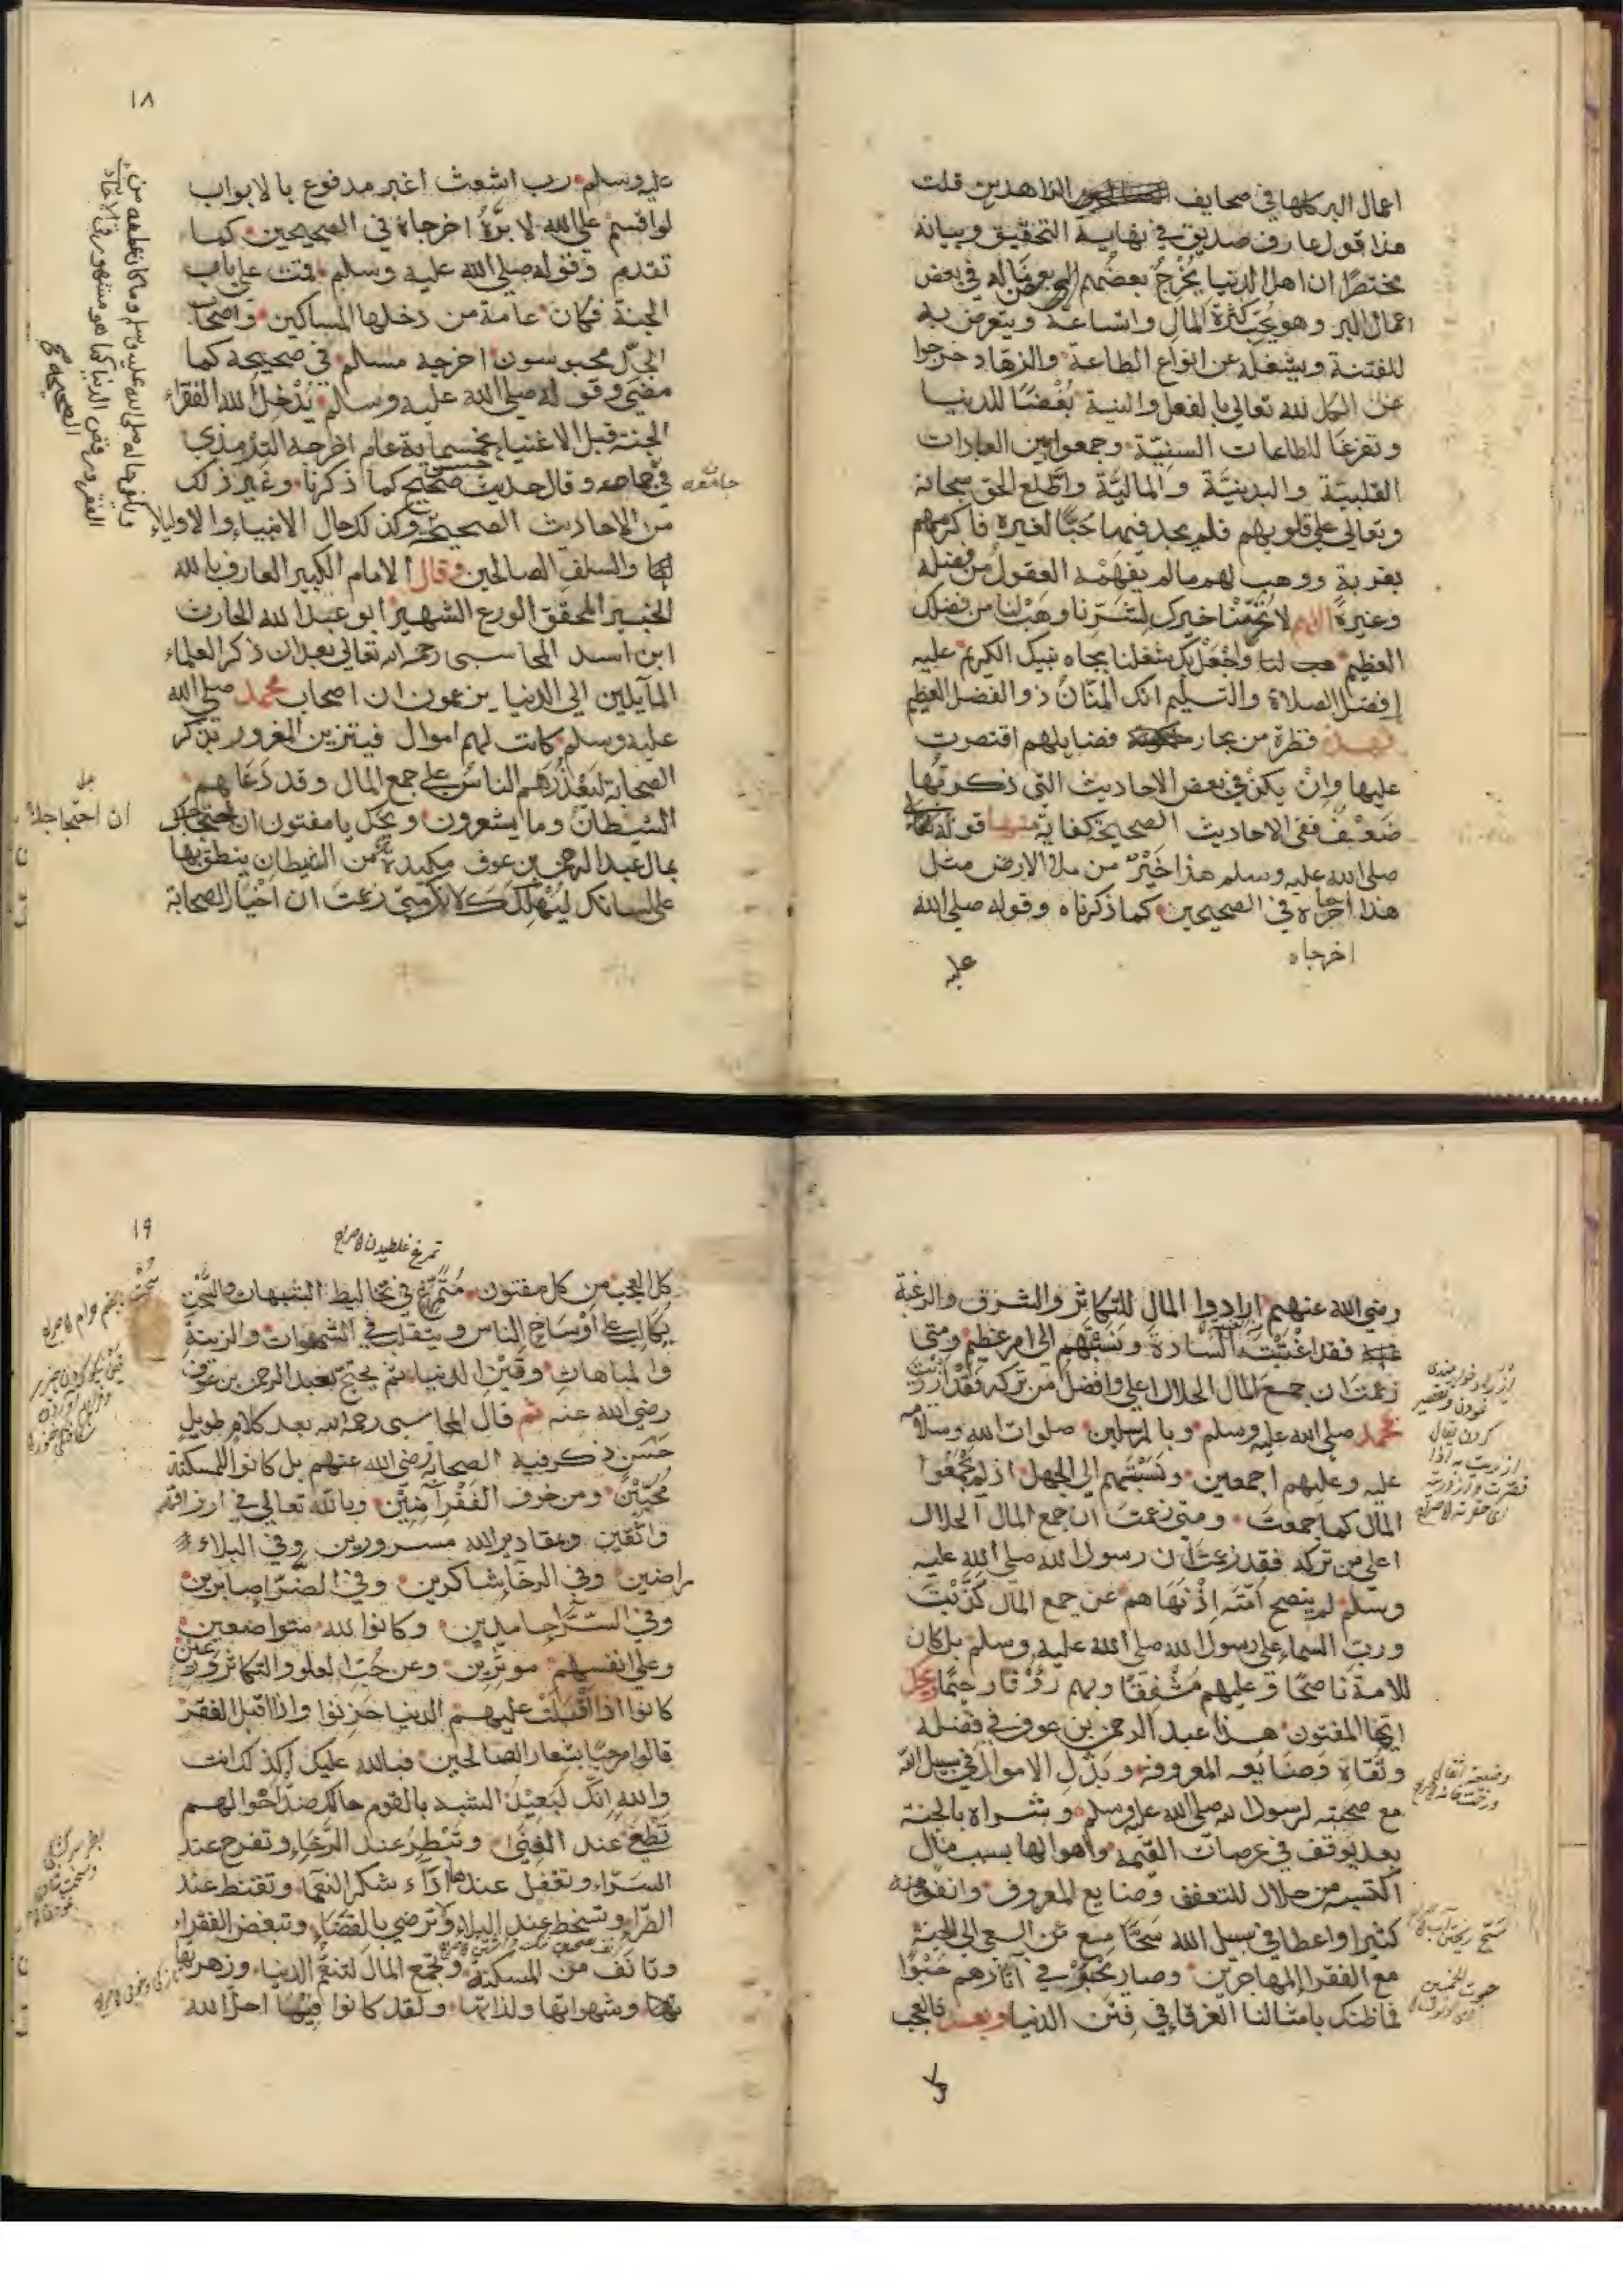 اعمال البر كلها في صحايف الزاهدين قلت
هذا قول عارف صديق في نهاية التحقيق وبيانه
مختصرًا ان اهل الدنيا يُخْرِجُ بعضُهم بعض ماله في بعض
اعمال البر وهو يحب كثرة المال واتساعه ويتعرض به
للفتنة ويشغله عن انواع الطاعة والزهاد خرجوا
عن الكل لله تعالى بالفعل والنية بُغْضًا للدنيا
وتفرغا للطاعات السنيّة وجمعوا بين العبادات
القلبيّة والبدنيّة والماليّة واطّلع الحق سبحانه
وتعالي علي قلوبهم فلم يجد فيها حُبًّا لغيره فاكرمهم
بقربه ووهب لهم مالم يفهمْه العقول من فضله
وغيره اللهم لا تحرمْنا خيرك لِشَرِّنا وهَبْ لنا من فضلك
العظيم واجْعَلْ بك شغلنا بجاه نبيك الكريم عليه
افضل الصلاة والتسليم انك المنّانُ ذو الفضل العظيم
فهذه قطرة من بحار فضايلهم اقتصرت
عليها وانْ يكنْ في بعض الاحاديث التي ذكرتها
ضَعْفٌ ففي الاحاديث الصحيحة كفاية منها قوله
صلي الله عليه وسلم هذا خَيْرٌ من ملا الارض مثل
هذا اخرجاه في الصحيحين كما ذكرناه وقوله صلي الله
اخرجاه
عليه
١٨
عليه وسلم رب اشعث اغبر مدفوع بالابواب
لو اقسم علي الله لا برَّهُ اخرجاه في الصحيحين كما
تقدم وقوله صلي الله عليه وسلم قمت علي باب
الجنة فكان عامة من دخلها المساكين واصحاب
الجدّ محبوسون اخرجه مسلم في صحيحه كما
مضي وقوله صلي الله عليه وسلم يدْخل الفقراء
الجنة قبل الاغنياء بخمسماية عام اخرجه الترمذي
في جامعه وقال حديث حسن صحيح كما ذكرنا وغير ذلك
جامعه
من الاحاديث الصحيحة وكذلك حال الانبياء والاولياء
والسلف الصالحين وقال الامام الكبير العارف بالله
الخبير المحقق الورع الشهير ابو عبد الله الحارث
ابن اسد المحاسبي رحمه الله تعالي بعد ان ذكر العلماء
المآيلين الي الدنيا يزعمون ان اصحاب محمد صلي الله
عليه وسلم كانت لهم اموال فيتزين المغرور بذكر
الصحابة ليَعْذُرَهم الناس علي جمع المال وقد دَعَاهم
الشيطان وما يشعرون ويحك يا مفتون ان احتجاجك
ان احتجاجك
بمال عبد الرحمن بن عوف مكيدة من الشيطان ينطق بها
علي لسانك ليُهْلِكَكَ لانك متي زعمت ان اخيار الصحابة
رضي الله عنهم ارادوا المال للتكاثر والشرف والرغبة
فقد اغْتَبْتَ السادة ونَسَبْتَهم الي امر عظيم ومتي
زعمت ان جمع المال الحلال اعلي وافضل من تركه فقد ازريْت
محمد صلي الله عليه وسلم وبالمرسلين صلوات الله وسلامه
عليه وعليهم اجمعين ونَسَبْتَهم الي الجهل اذ لم يَجْمَعُوا
المال كما جمعتَ ومتي زعمتَ ان جمع المال الحلال
اعلي من تركه فقد زعمت ان رسول الله صلي الله عليه
وسلم لم ينصح اُمّتَه اِذْ نَهَاهم عن جمع المال كَذَبْتَ
وربِّ السماء علي رسول الله صلي الله عليه وسلم بل كان
للامة ناصحًا وعليهم مُشْفِقًا وبهم رؤفا رحيمًا ويحك
ايّها المفتون هذا عبد الرحمن بن عوف في فضله
وتُقَاهِ وصَنَايعه المعروف وبَذْلِ الاموال في سبيل الله
مع صحبته لرسول الله صلي الله عليه وسلم وبشراه بالجنة
يوقف في عرصات القيمة واهوالها بسبب مال
اكتسبه من حلال للتعفف وصنايع المعروف وانفق منه
كثيرا واعطا في سبيل الله سَحًّا مُنِع من السعي الي الجنة
مع الفقرا المهاجرين وصار يَحْبُوْ في آثارهم حَبْوًا
فما ظنك بامثالنا الغرقا في فِتَن الدنيا وبعد فالعجب
كل
١٩
تمرغ غلطيدن
كل العجب من كل مفتون مُتَمَرِّغ في تخاليط الشبهات والسُّحْت
يتكالب علي اَوْسَاخ الناس ويتقلب في الشهوات والزينة
والمباهات وفِتَنِ الدنيا ثم يحتج بعبد الرحمن بن عوف
رضي الله عنه ثم قال المحاسبي رحمه الله بعد كلام طويل
حَسَن ذكر فيه الصحابة رضي الله عنهم بل كانوا للمسكنة
مُحِبِّيْنَ ومن خوف الفَقْر آمنِيْن وبالله تعالي في ارزاقهم
واثقين وبمقادير الله مسرورين وفي البلاء
راضين وفي الرخا شاكرين وفي الضرّا صابرين
وفي السّرّا حامدين وكانوا لله متواضعين
وعلي انفسهم موثرين وعن حُبّ العلو والتكاثر ورعين
كانوا اذا اَقْبَلَتْ عليهم الدنيا حَزِنُوا واذا اقبل الفقر
قالوا مرحبًا بشعار الصالحين فبالله عليك اكذلك انت
والله اِنّك لَبَعِيْدُ الشبه بالقوم حالك ضد احوالهم
تَطْغَي عند الغِنَي وتَبْطَر عند الرَّخاء وتفرح عند
السرّاء وتغفل عند اَدَاء شكر النعما وتقنط عند
الضرّاء وتسخط عند البلاء ولا ترضي بالقضاء وتبغض الفقراء
وتانَف من المسكنة وتجمع المال لتنعّم الدنيا وزهرتها
وشهواتها ولذاتها ولقد كانوا فيما احل الله